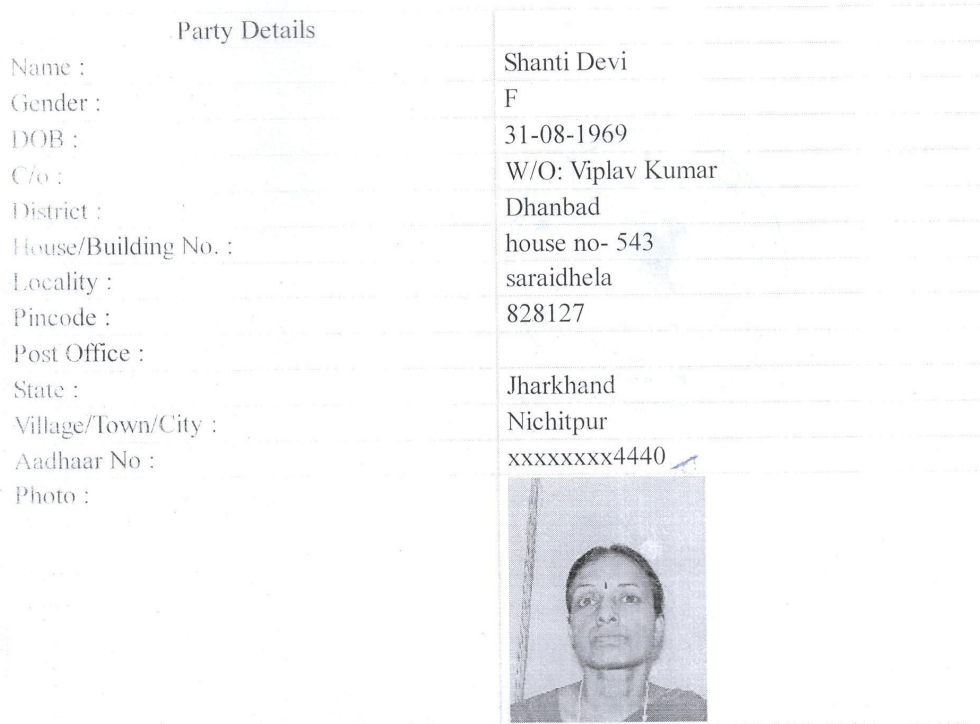 Party Details
Name : Shanti Devi
Gender : F
DOB : 31-08-1969
C/o : W/O: Viplav Kumar
District : Dhanbad
House/Building No. : house no- 543
Locality : saraidhela
Pincode : 828127
Post Office :
State : Jharkhand
Village/Town/City : Nichitpur
Aadhaar No : xxxxxxxx4440
Photo :